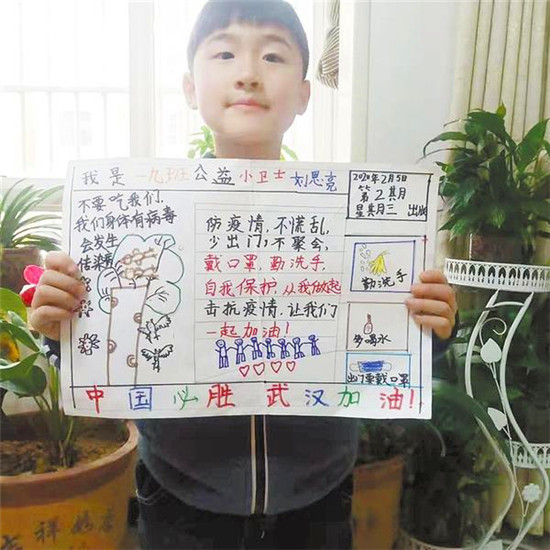 我是一九班公益小卫士 刘思亮
2020年2月5日
第2期
星期三 出版
不要吃我们,
我们身体有病毒
会发生
传染病
防疫情,不慌乱,
少出门,不聚会,
戴口罩,勤洗手,
自我保护,从我做起
击抗疫情,让我们
一起加油!
勤洗手
多喝水
出门要戴口罩
中国必胜 武汉加油!
吉祥如意